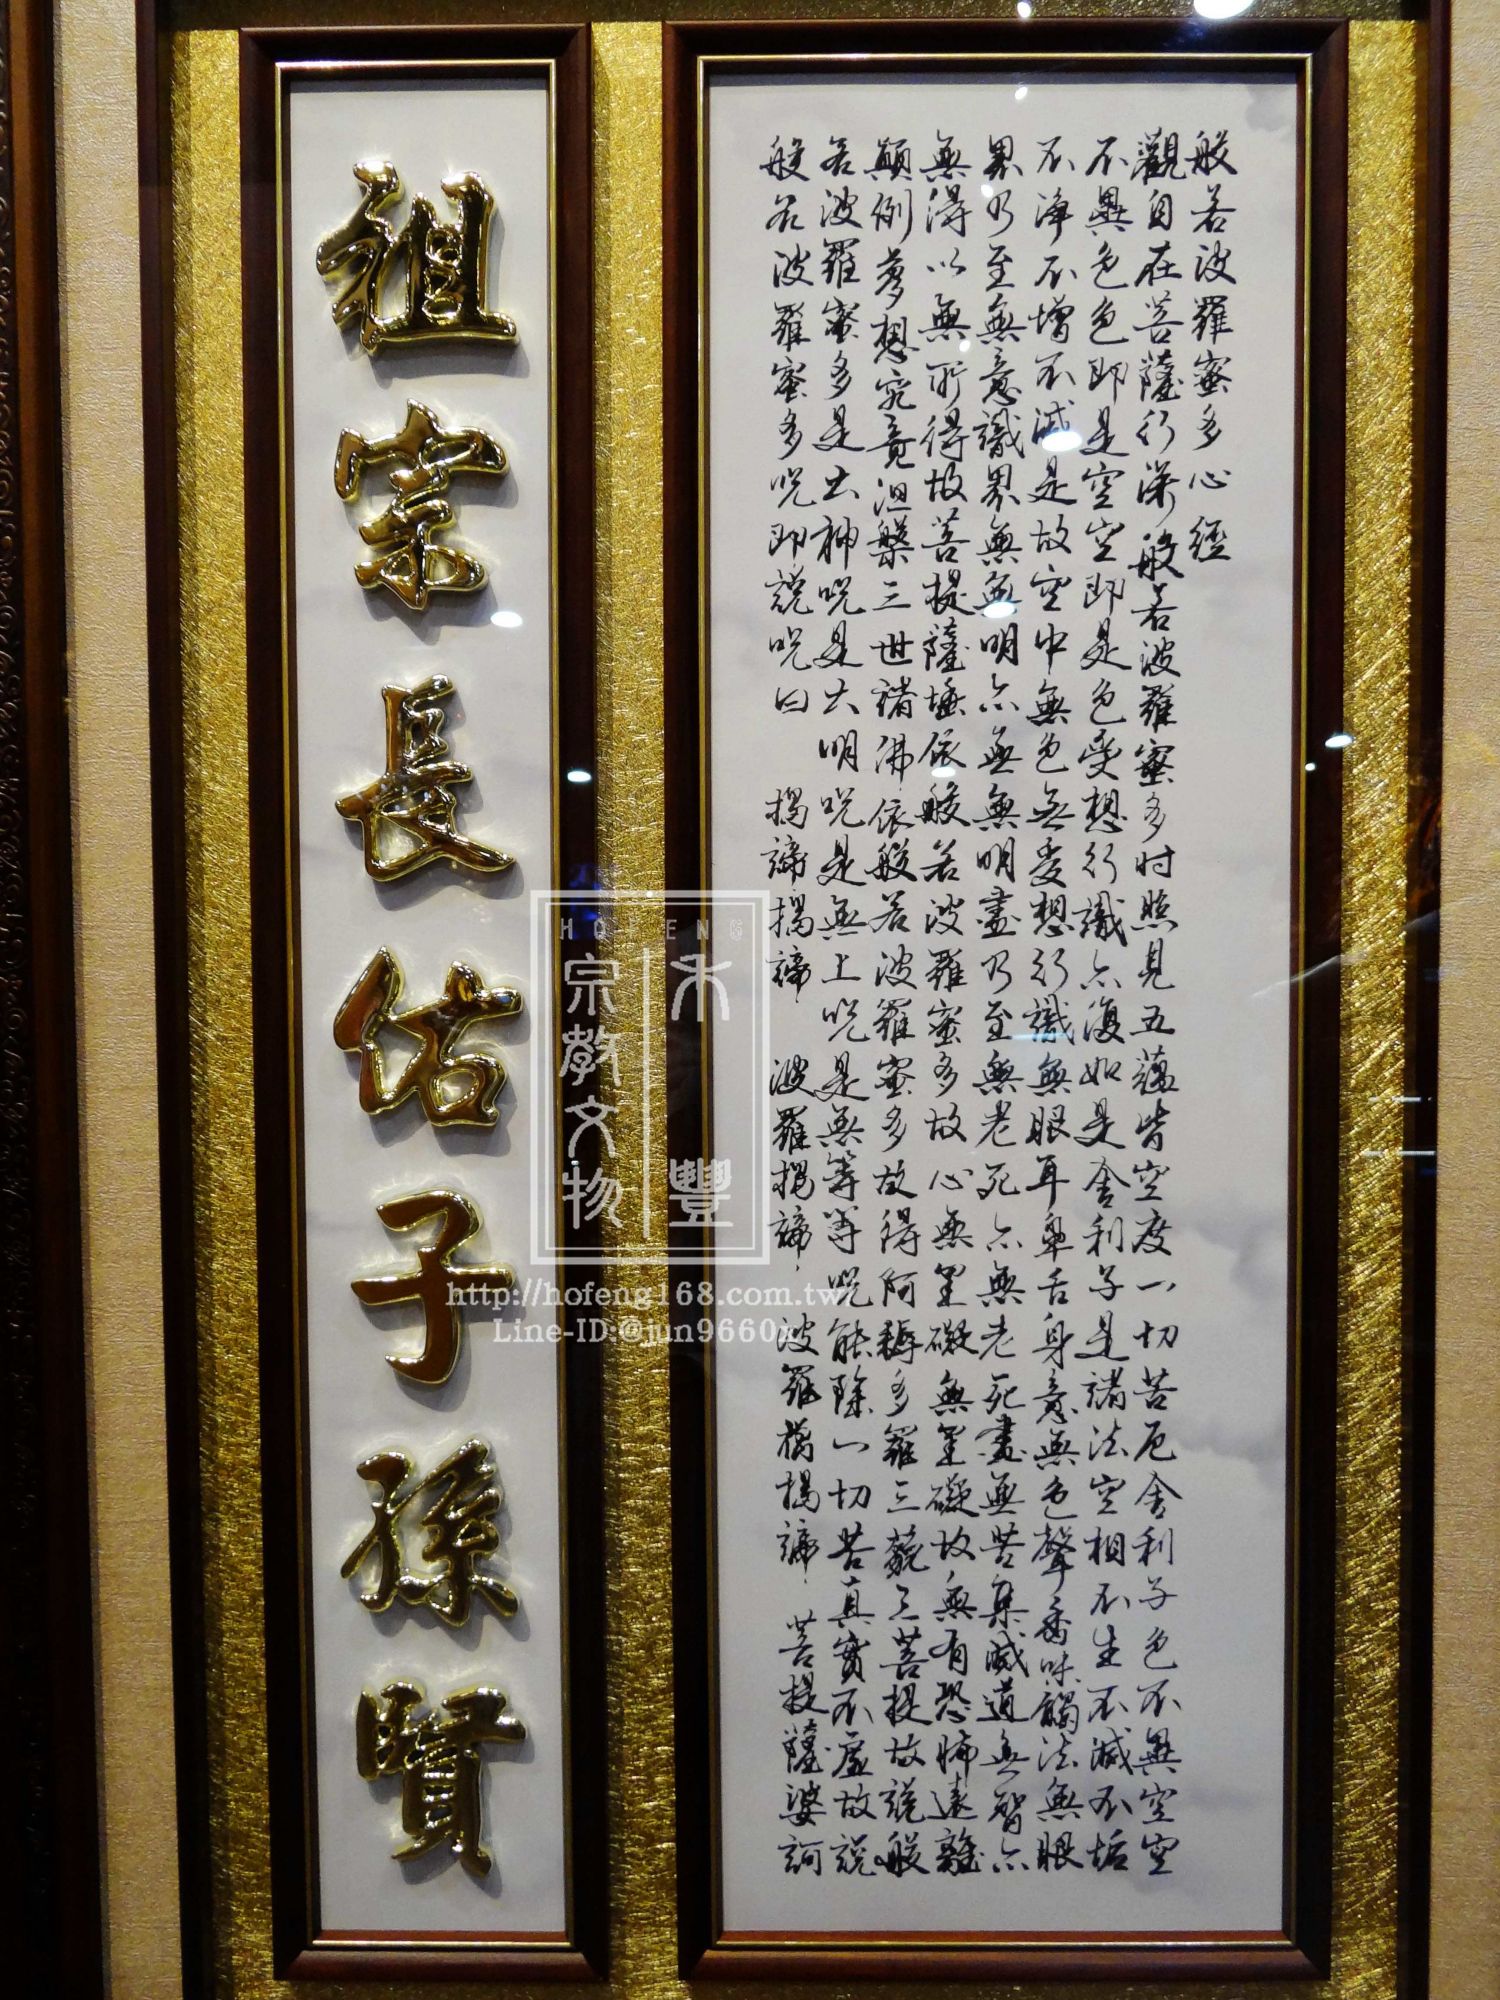 般若波羅蜜多心經
觀自在菩薩行深般若波羅蜜多時照見五蘊皆空度一切苦厄舍利子色不異空空
不異色色即是空空即是色受想行識亦復如是舍利子是諸法空相不生不滅不垢
不淨不增不減是故空中無色無受想行識無眼耳鼻舌身意無色聲香味觸法無眼
界乃至無意識界無無明亦無無明盡乃至無老死亦無老死盡無苦集滅道無智亦
無得以無所得故菩提薩埵依般若波羅蜜多故心無罣礙無罣礙故無有恐怖遠離
顛倒夢想究竟涅槃三世諸佛依般若波羅蜜多故得阿耨多羅三藐三菩提故說般
若波羅蜜多是大神咒是大明咒是無上咒是無等等咒能除一切苦真實不虛故說
般若波羅蜜多咒即說咒曰 揭諦揭諦 波羅揭諦 波羅僧揭諦 菩提薩婆訶
祖宗長佑子孫賢
HOFENG
禾豐
宗教文物
http://hofeng168.com.tw/
Line-ID:@jun9660z